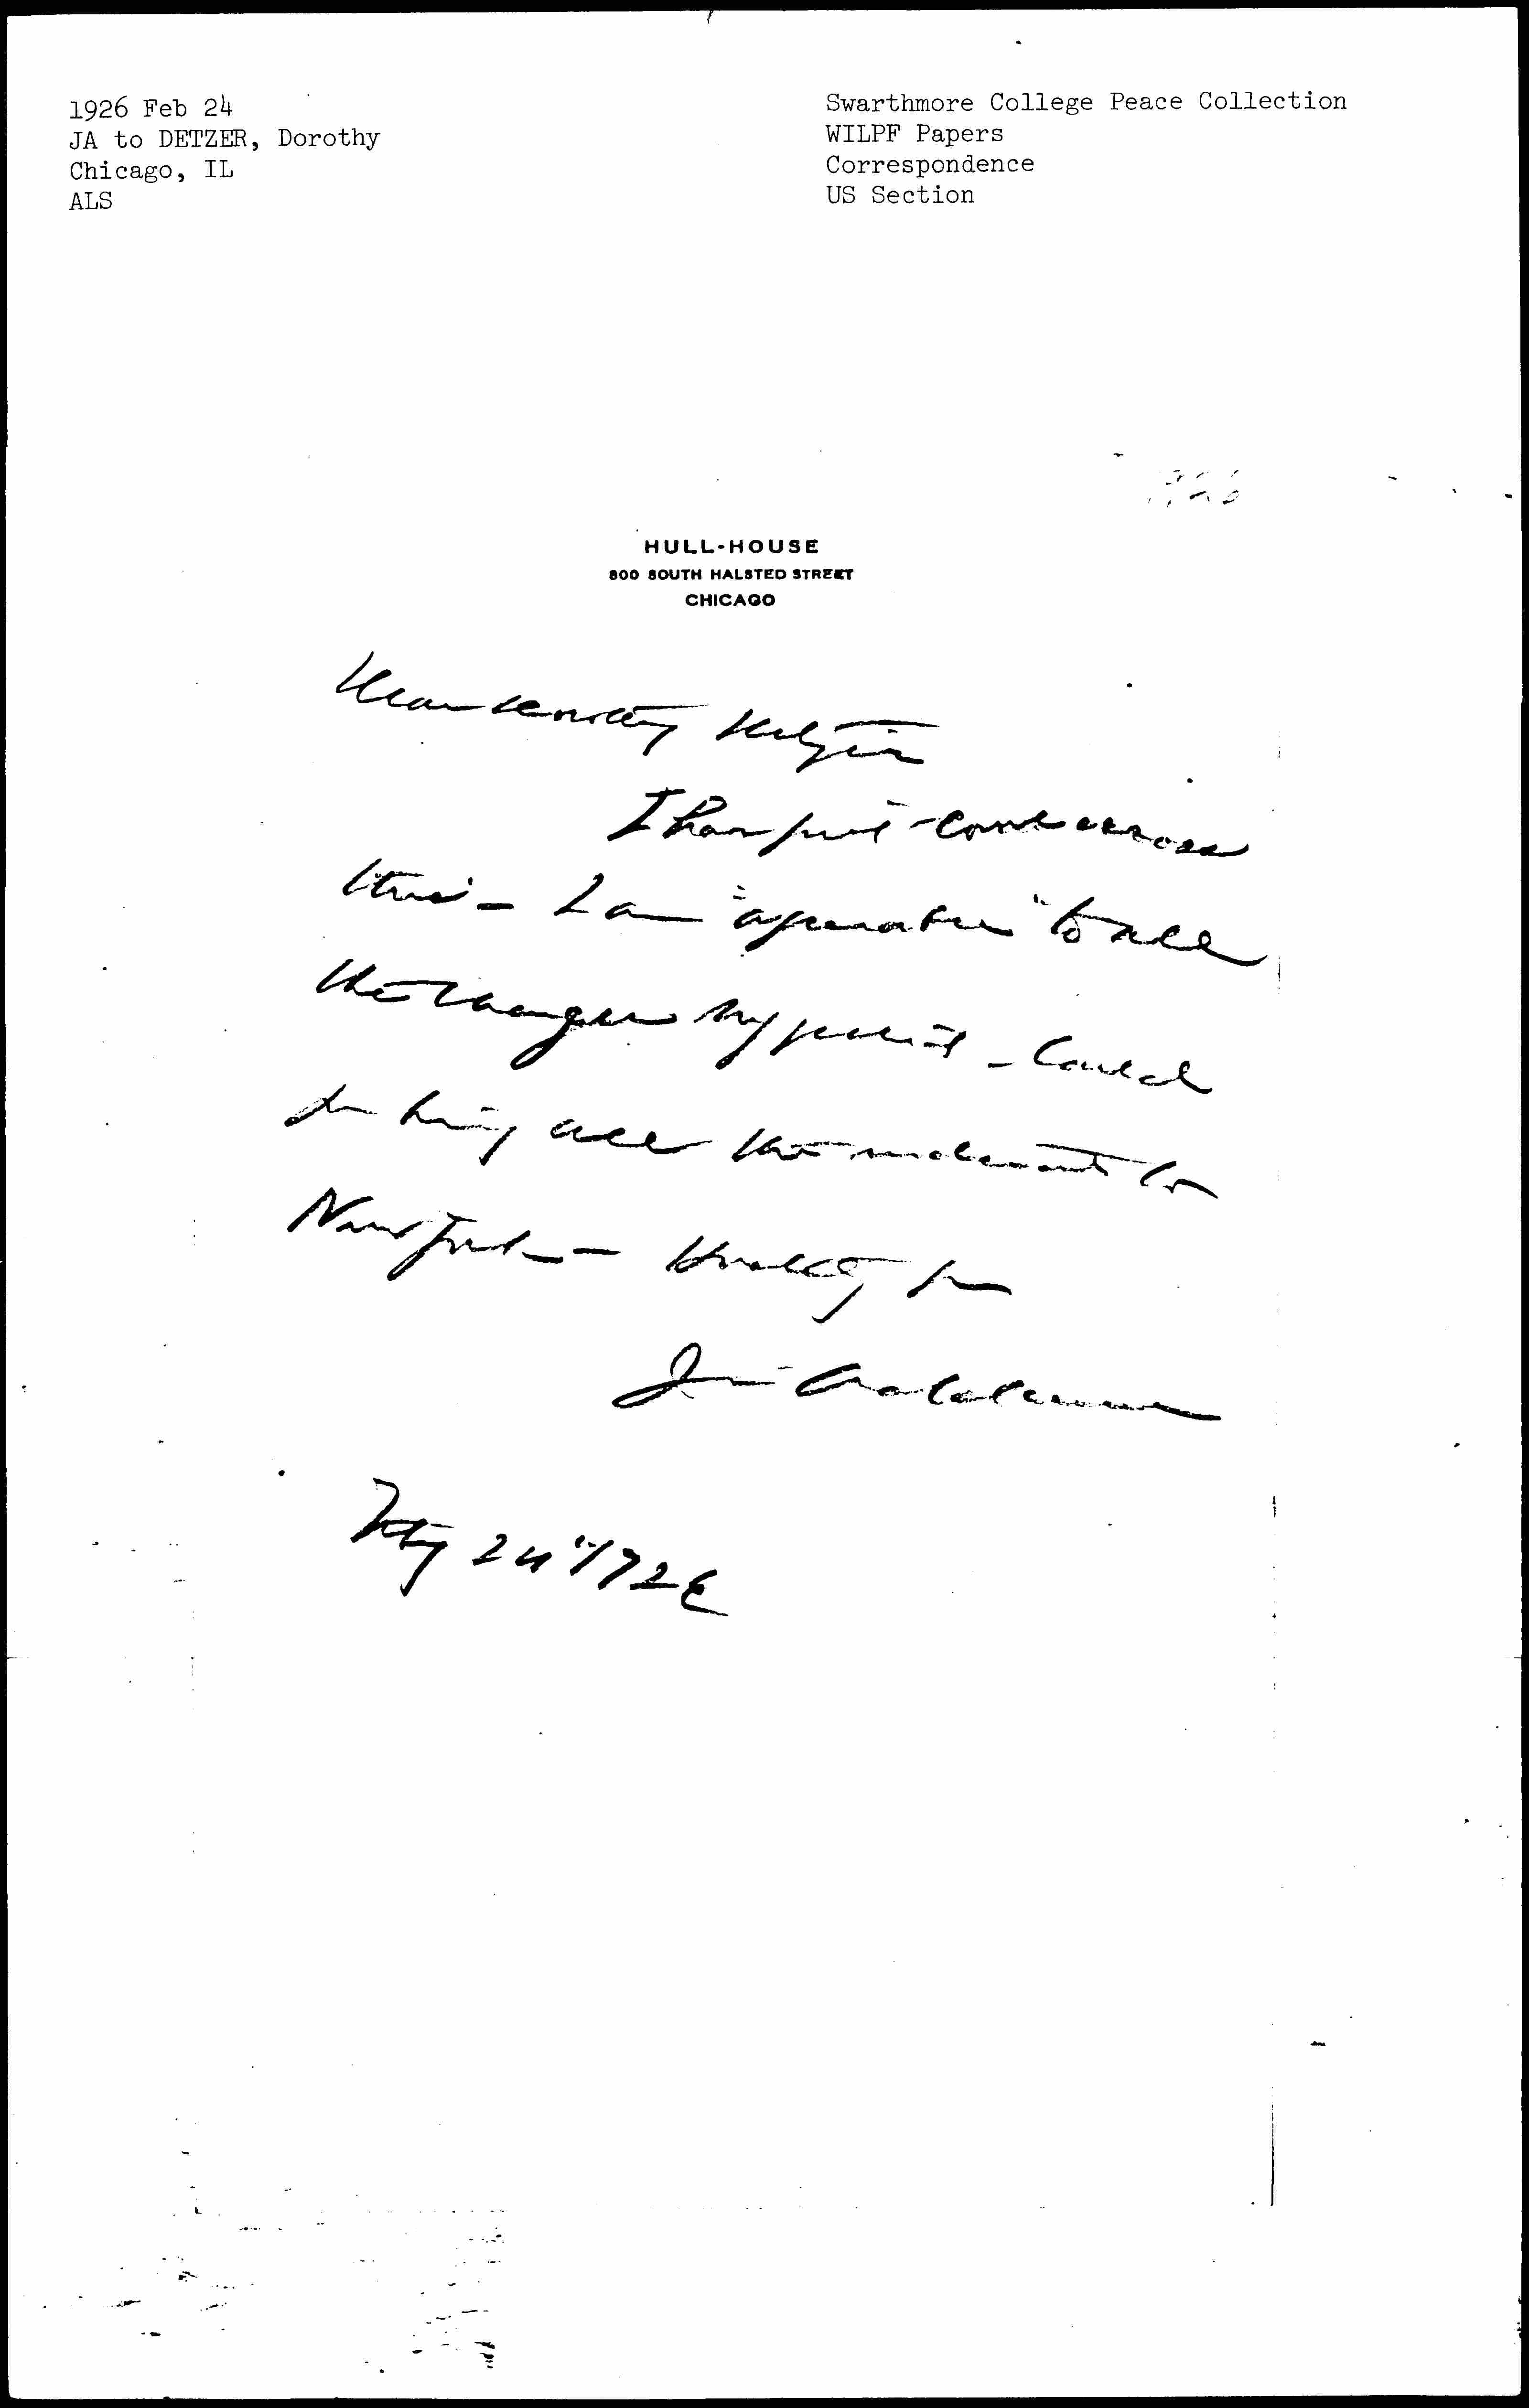 1926 Feb 24
JA to DETZER, Dorothy
Chicago, IL
ALS
Swarthmore College Peace Collection
WILPF Papers
Correspondence
US Section
1926
HULL-HOUSE
800 SOUTH HALSTED STREET
CHICAGO
Dear Dorothy Detzer
I have just come across
this - I am to all
the changes - Could
you bring all the to
New York -
Jane Addams
Feby 24" 1926